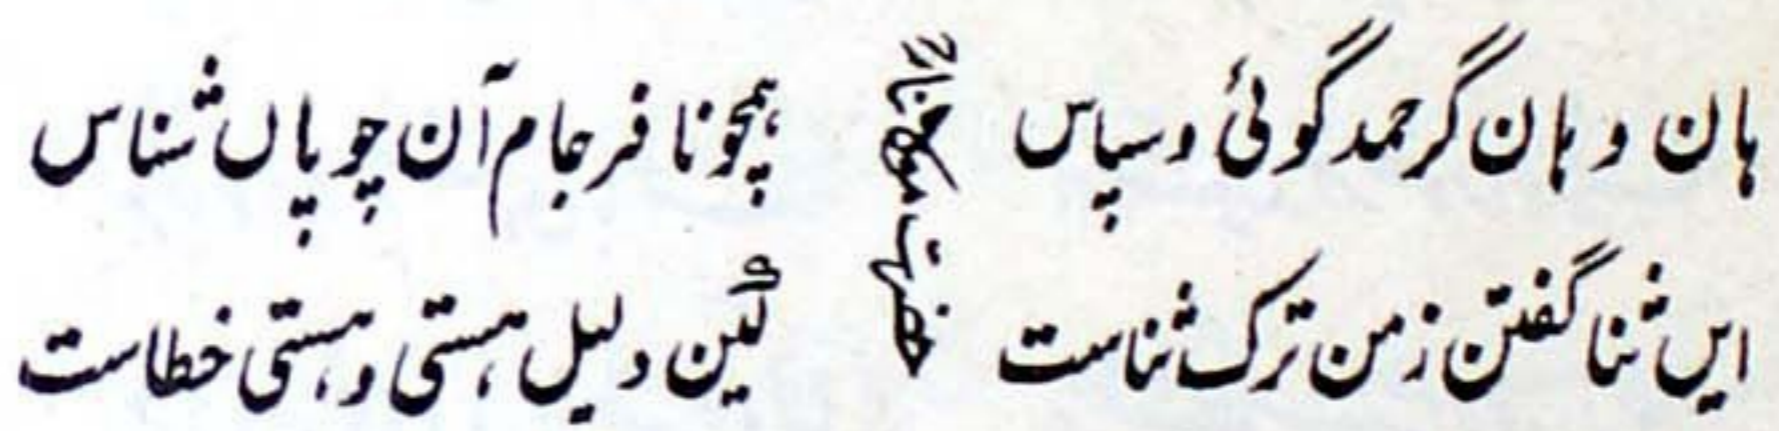 ہان و ہان گر حمد گوئی و سپاس
ہمچو نا فرجام آن چوپاں شناس
ایں ثنا گفتن ز من ترک ثناست
کین دلیل ہستی و ہستی خطاست